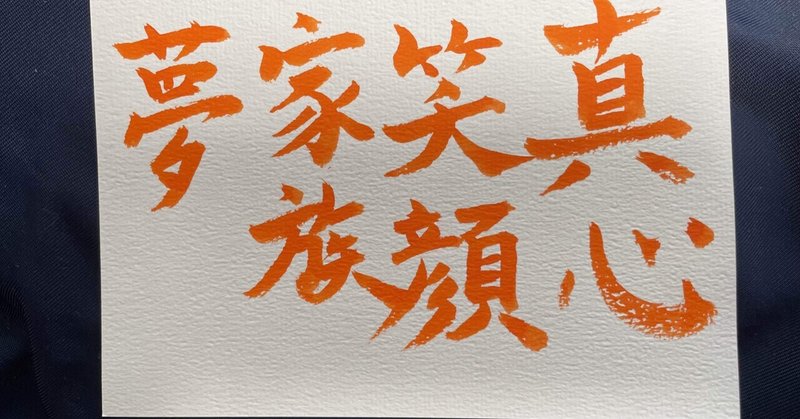 真心
笑顔
家族
夢